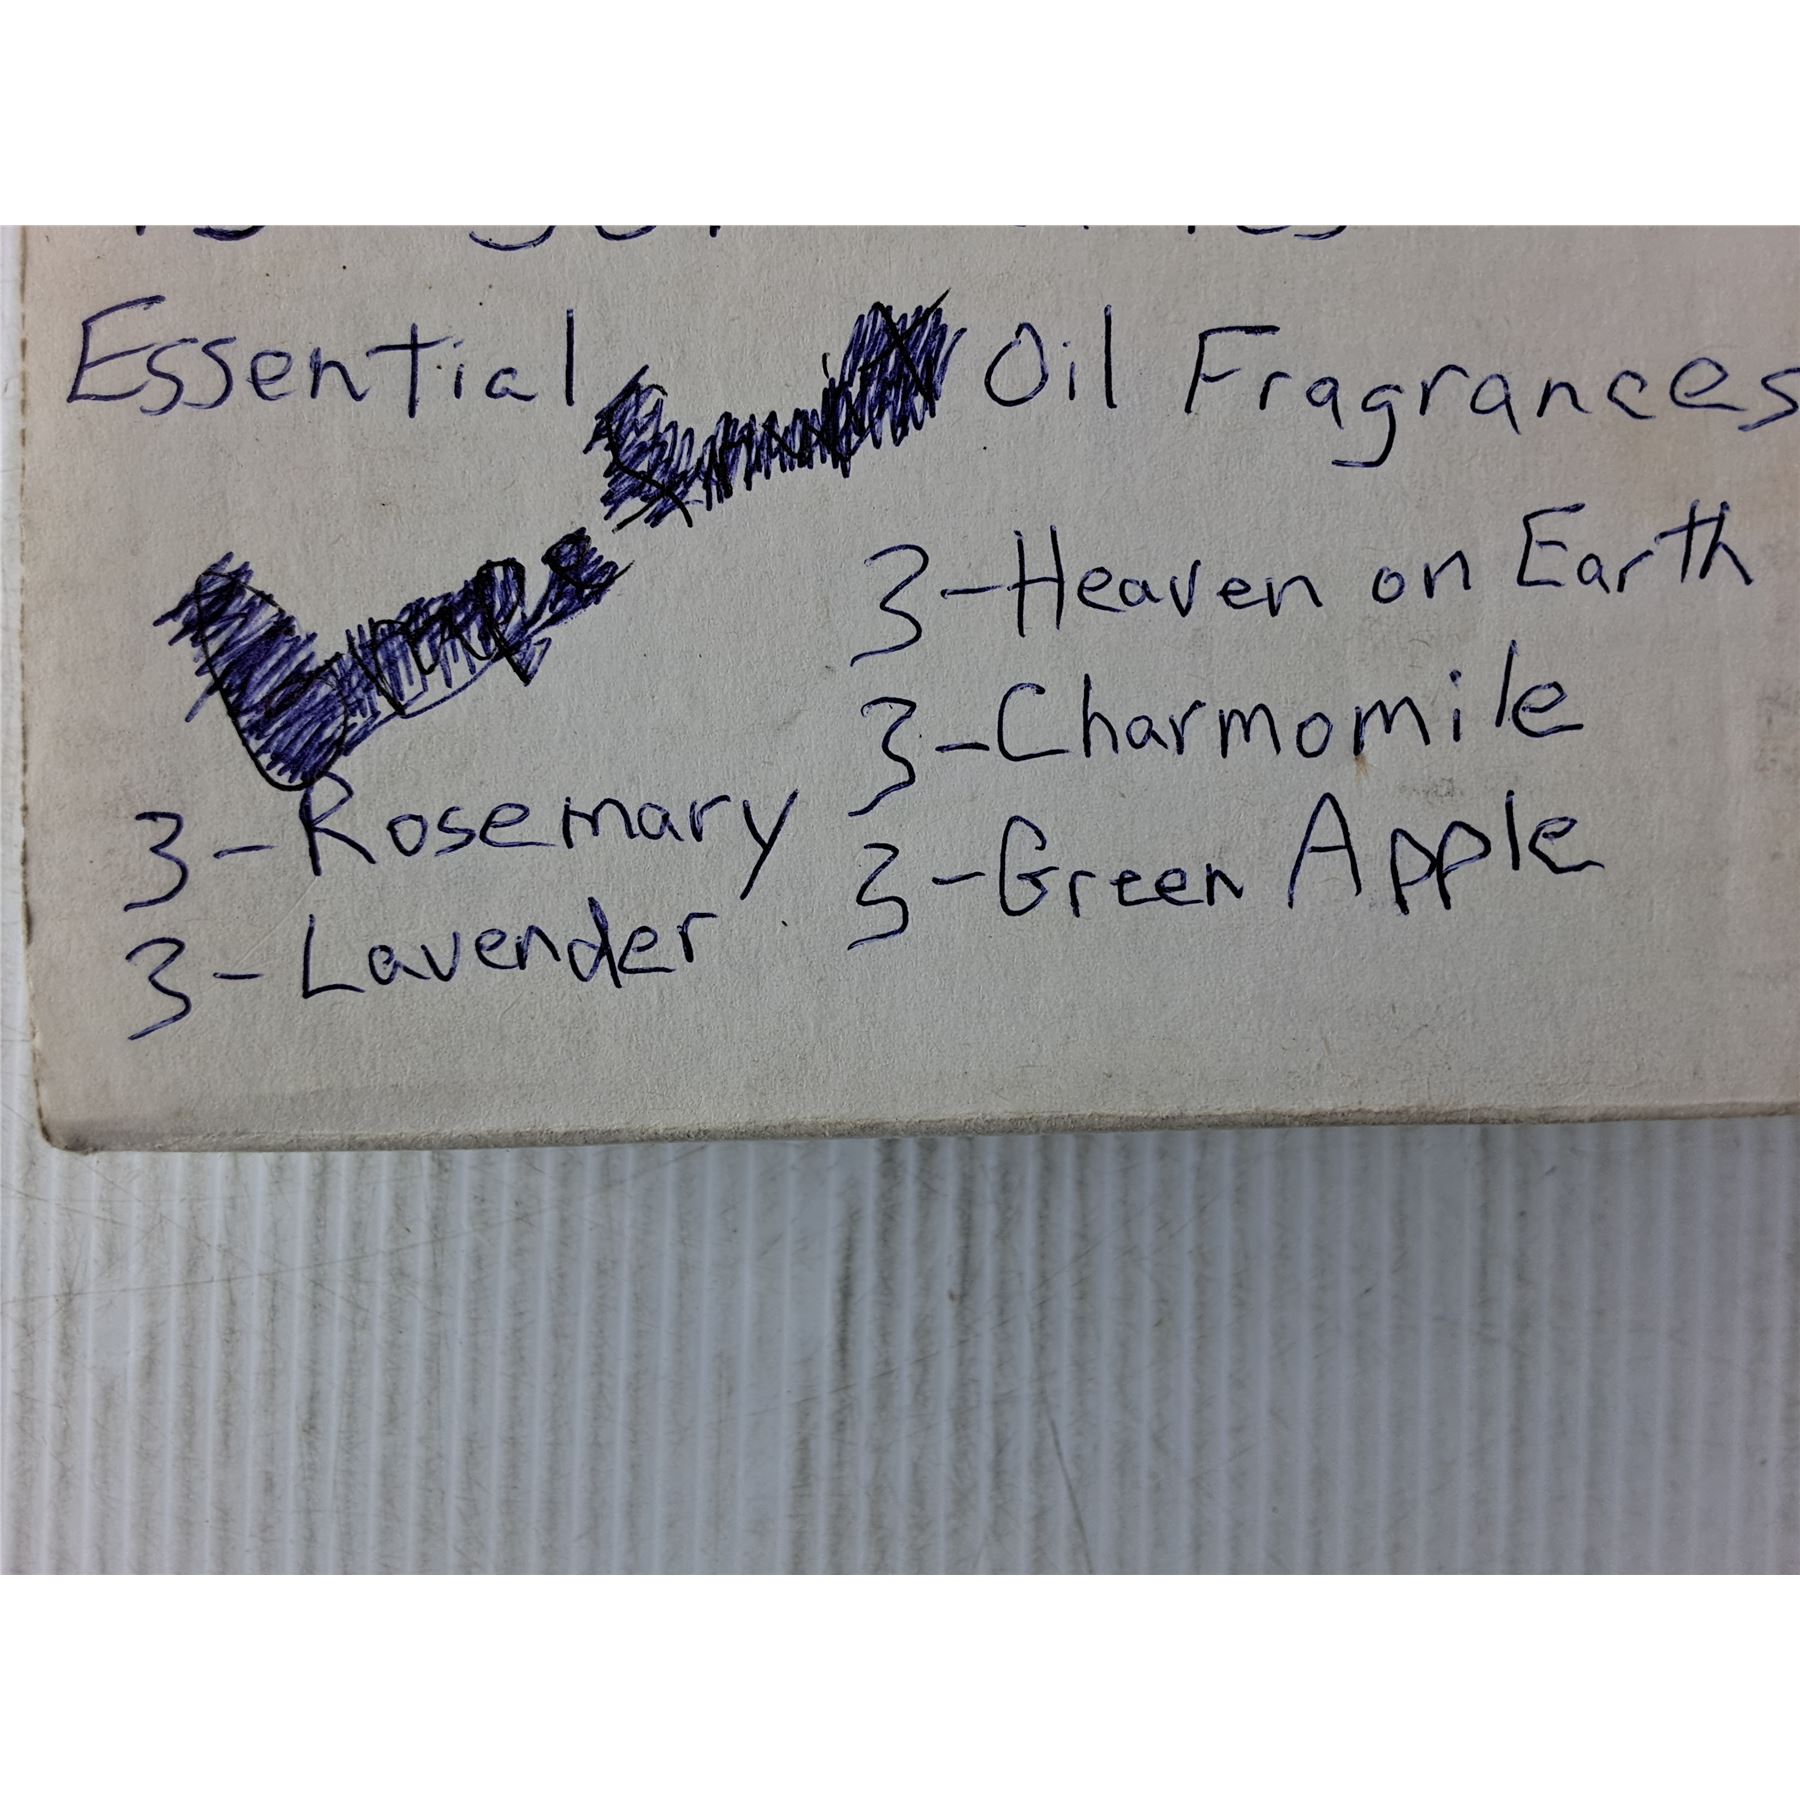 Essential Oil Fragrances
3-Rosemary
3-Lavender
3-Heaven on Earth
3-Charmomile
3-Green Apple